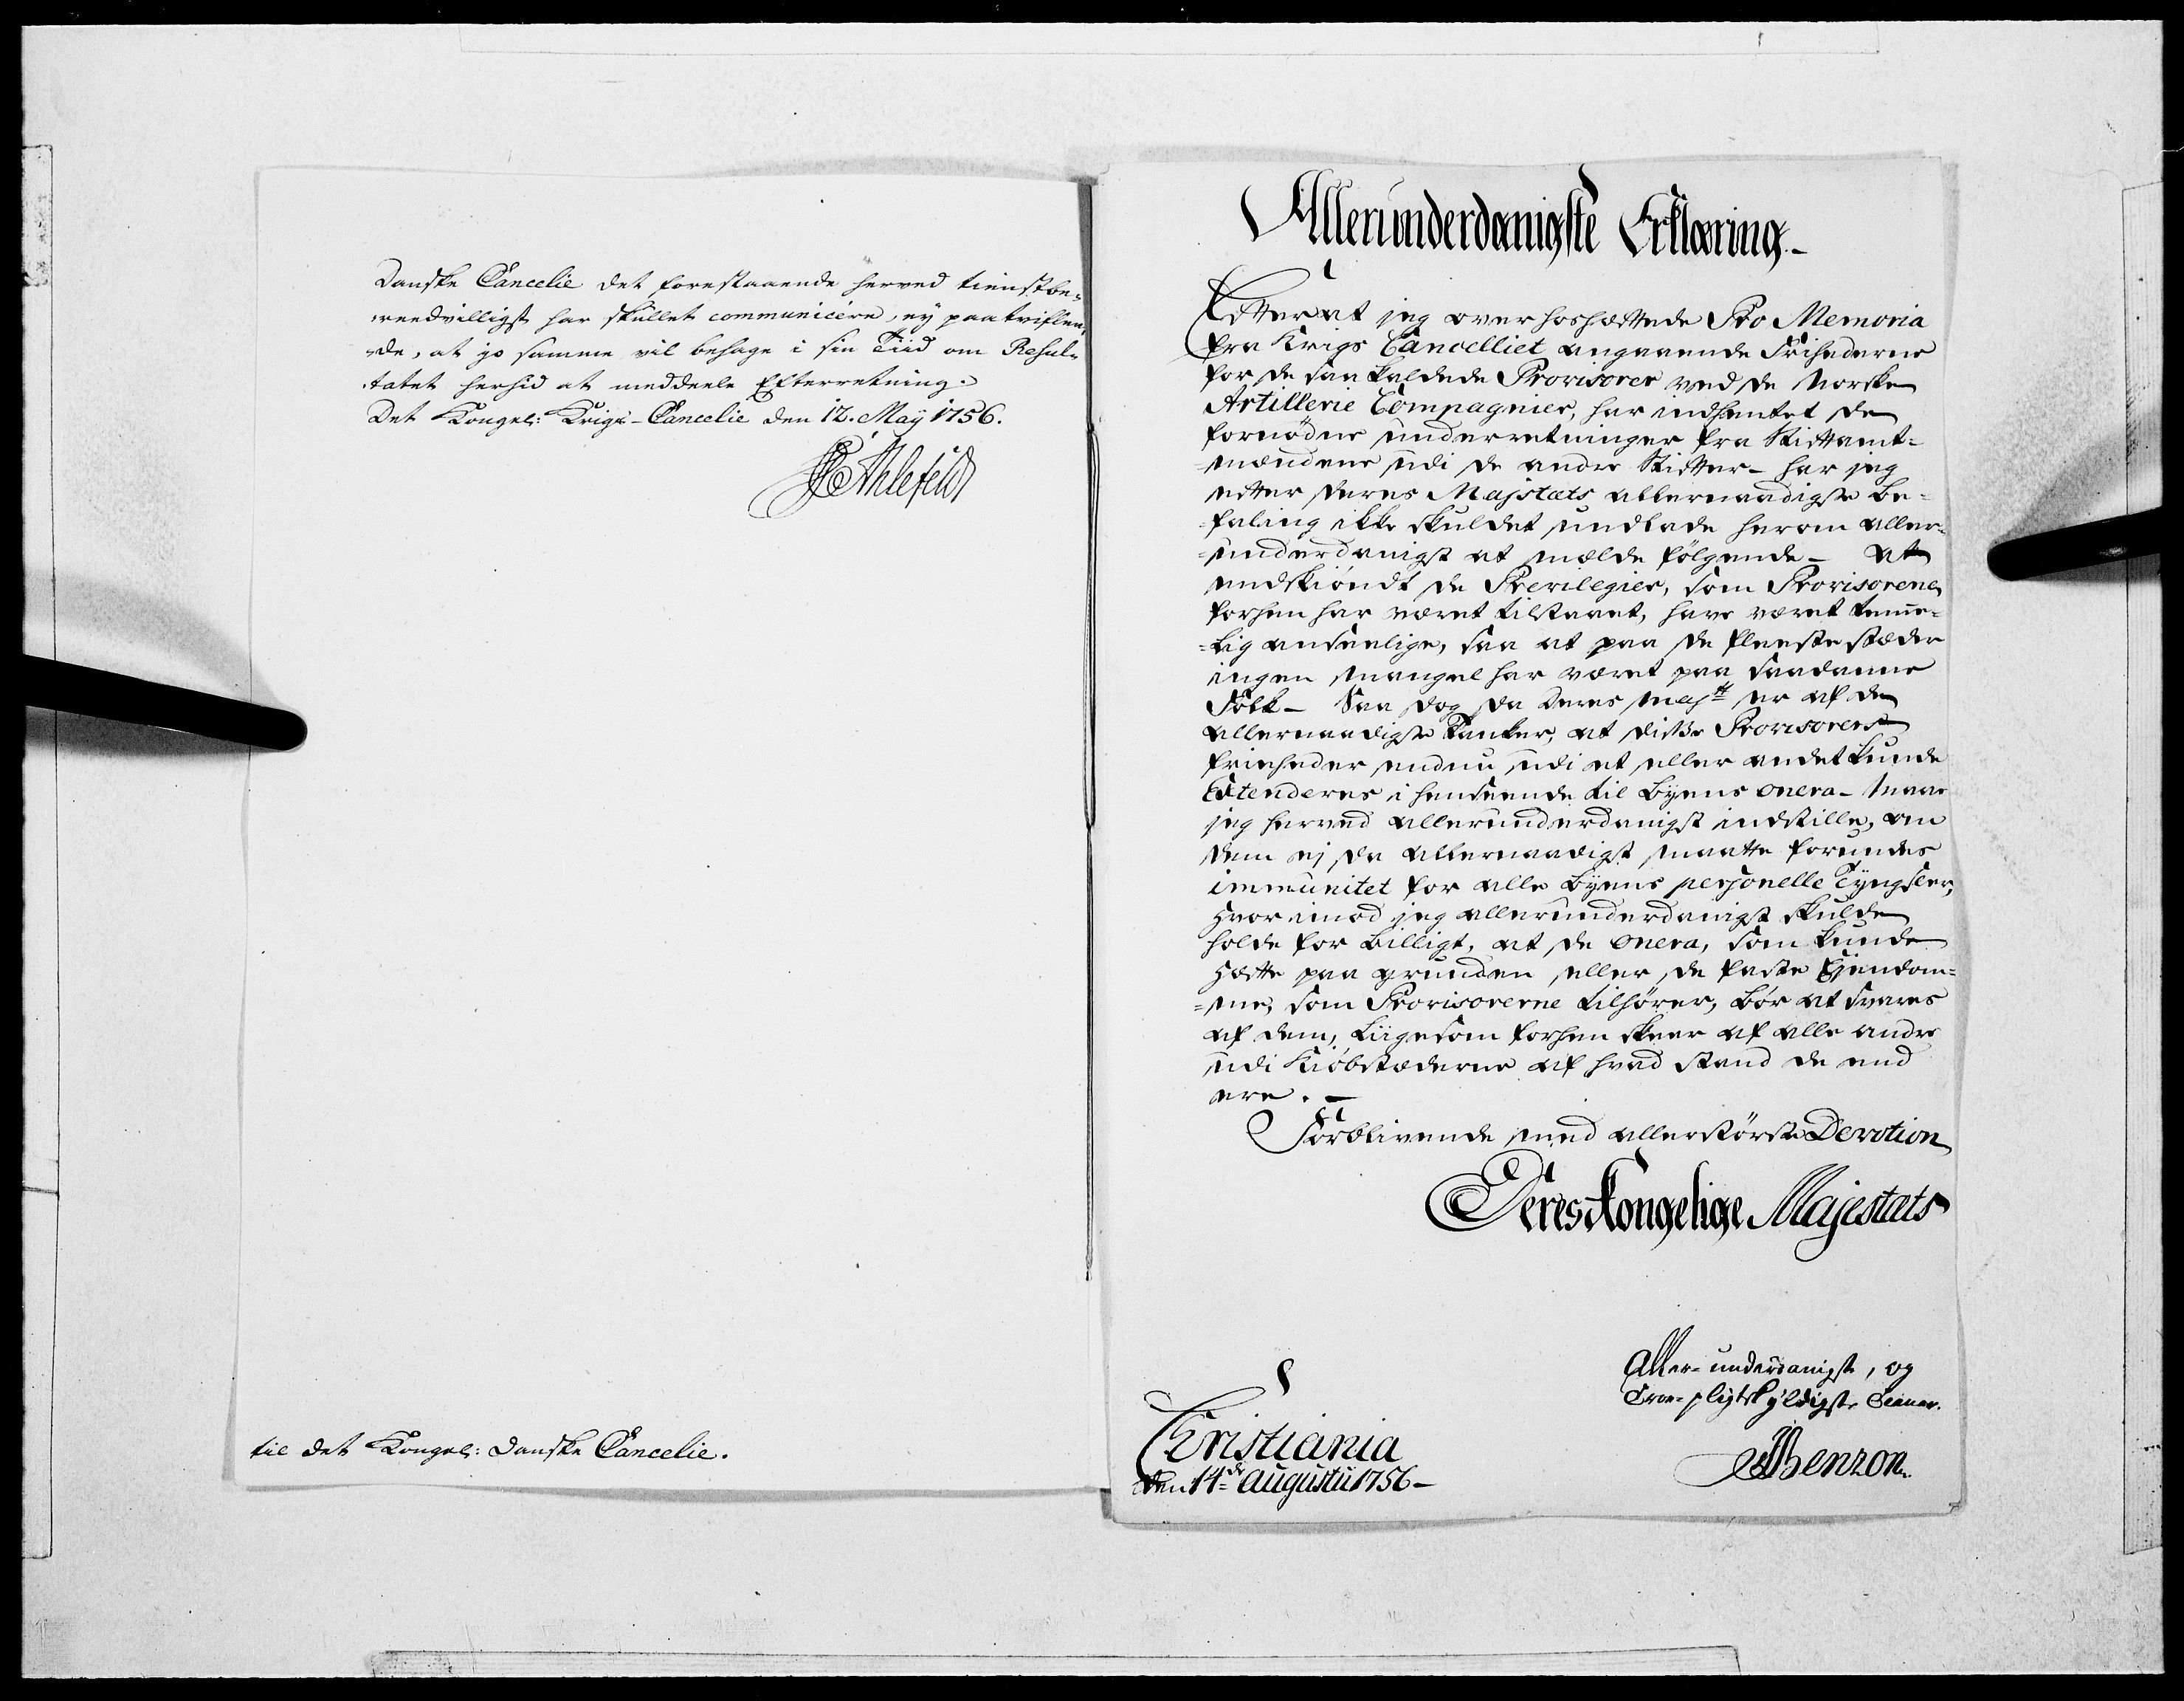 Danske Cancelie det forestaaende herved tienstbe-
reedvilligst har skullet communicere, ey paatviflen-
de, at jo samme vil behage i sin Tiid om Resul-
tatet herhid at meddeele Efterretning.
Det Kongel: Krigs-Cancelie den 12. Maÿ 1756.
Ahlefeldt
til det Kongel: Danske Cancelie.
Allerunderdanigste Erklæring.-
Efterat jeg over hoshæftede Pro Memoria
fra Krigs Cancelliet angaaende Friheederne
for de saa kaldede Provisorer ved de Norske
Artillerie Compagnier, har indhentet de
fornødne underretninger fra Stiftamt-
mændene udi de andre Stifter- har jeg
efter Deres Majstæts allernaadigste be-
faling ikke skuldet undlade herom aller-
underdanigst at mælde følgende- At
endskiøndt de Previlegier, som Provisorene
forhen har været tilstaaet, have været temme-
lig anseelige, saa at paa de fleeste stæder
ingen mangel har været paa saadanne
Folk- Saa dog da Deres Majts er af de
allernaadigste Tanker, at disse Provisorers
friheeder endnu udi et eller andet kunde
Extenderes i henseende til Byens onera- maae
jeg herved allerunderdanigst indstille, om
dem ej da allernaadigst maatte forundes
immunitet for alle Byens personelle Tÿngsler,
hvor imod jeg allerunderdanigst skulde
holde for billigt, at de onera, som kunde
hæfte paa grunden eller de faste Ejendom-
me, som Provisorerne tilhører, bør at svares
af dem, liigesom forhen skeer af alle andre
udi Kiøbstæderne af hvad stand de end
ere. -
Forblivende med allerstørste Devotion
Deres Kongelige Majestæts
Aller-underdanigst, og
Troe-pligtskÿldigste Tienner.
Benzon.
Christiania
den 14de Augustii 1756-